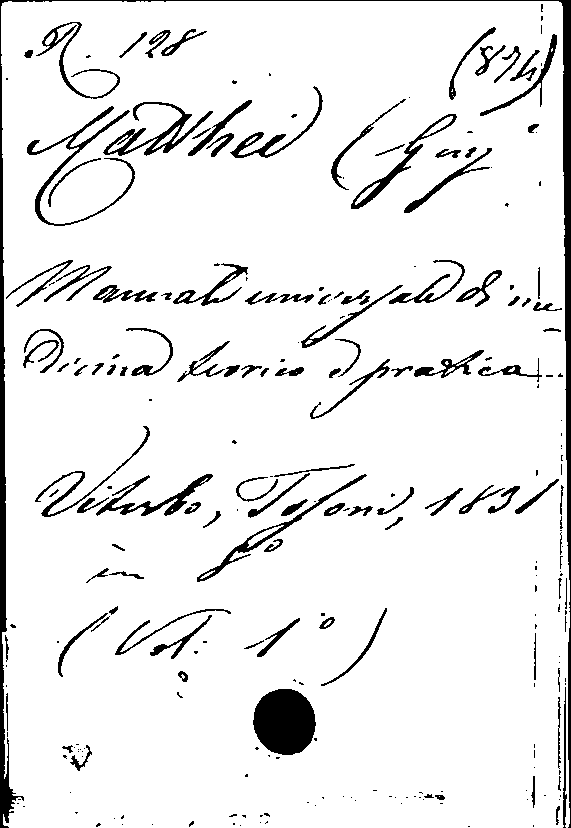 R. 128 (874)
Matthei (Gius.e
Manuale universale di me-
dicina teorico e pratica...
Viterbo, Tosoni, 1831
in 8vo
(Vol: 1°)